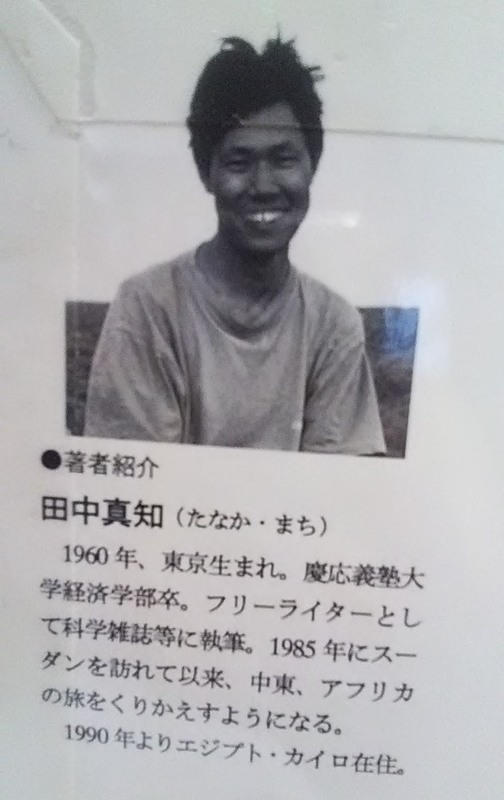 ●著者紹介
田中真知（たなか・まち）
1960年、東京生まれ。慶応義塾大
学経済学部卒。フリーライターとし
て科学雑誌等に執筆。1985年にスー
ダンを訪れて以来、中東、アフリカ
の旅をくりかえすようになる。
1990年よりエジプト・カイロ在住。